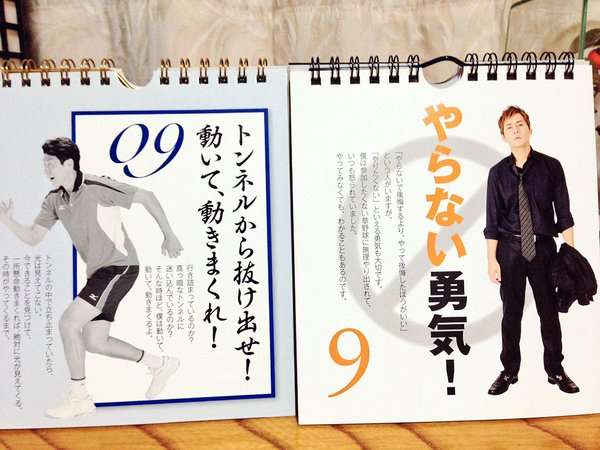 09
トンネルから抜け出せ！
動いて、動きまくれ！
行き詰まっているのか？
真っ暗なトンネルに
迷い込んでいるのか？
そんな時ほど、僕は動いて、
動いて、動きまくるよ。
トンネルの中で立ち止まっていたら、
光は見えてこない。
今できることを見つけて、
一生懸命動きまくれば、絶対に光が見えてくる。
その時がやってくるまで、
やらない勇気！
「やらないで後悔するより、やって後悔したほうがいい」
という人がいますが、
「やりたくない」といえる勇気も大切です。
僕は参加したくない草野球に無理やり出されて、
いつも怒られていました。
やってみなくても、わかることもあるのです。
9